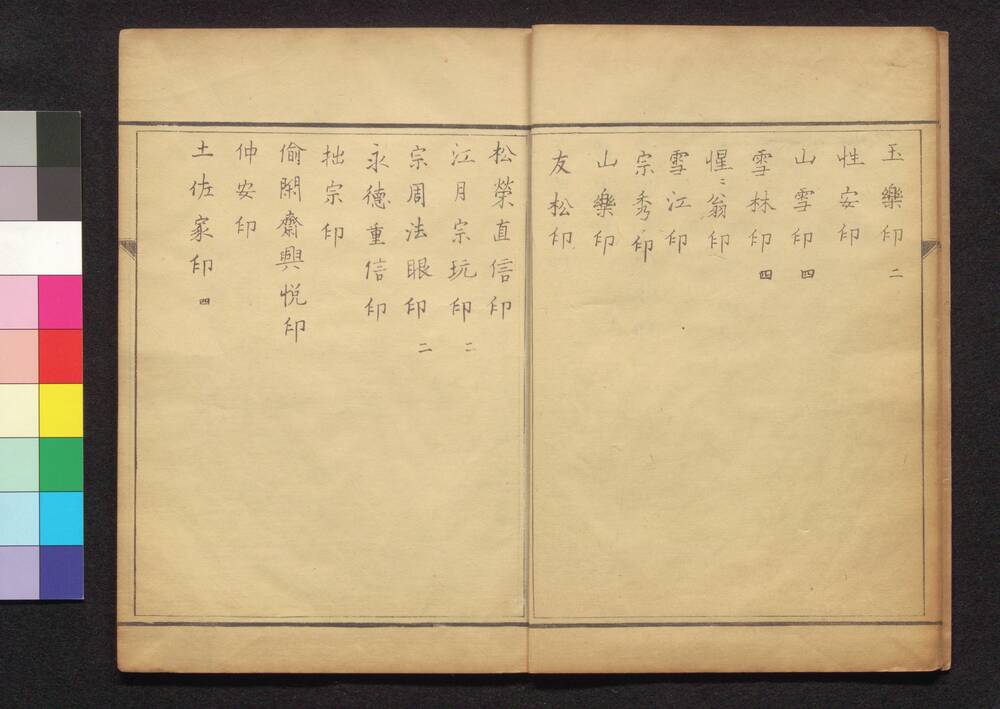 玉樂印 二
性安印
山雪印 四
雪林印 四
惺〻翁印
雪江印
宗秀印
山樂印
友松印
松榮直信印
江月宗玩印 二
宗周法眼印 二
永德重信印
拙宗印
偷閑齋興悦印
仲安印
土佐家印 四